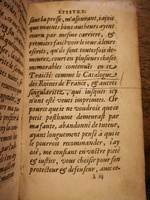 EPISTRE.
sous la presse, m'asseurant, iaçoit
que maints bons autheurs ayent
couru par mesme carriere, &
premiers faict voir le iour à leurs
escrits, qu'ils sont toutesfois
court en plusieurs choses
memorables contenuës en ce
Traicté: comme le Catalogue
des Roines de France, &
singularitez, qui iusques icy
n'ont esté veuës imprimees. Or
pource que ie ne voudrois que ce
petit posthume demeurast par
ma faute, abandonné de tuteur,
ayant longuement pensé à qui ie
le pourrois recommander, i'ay
osé, me confiant en vostre pieté
& iustice, vous choisir pour son
protecteur & defenseur,